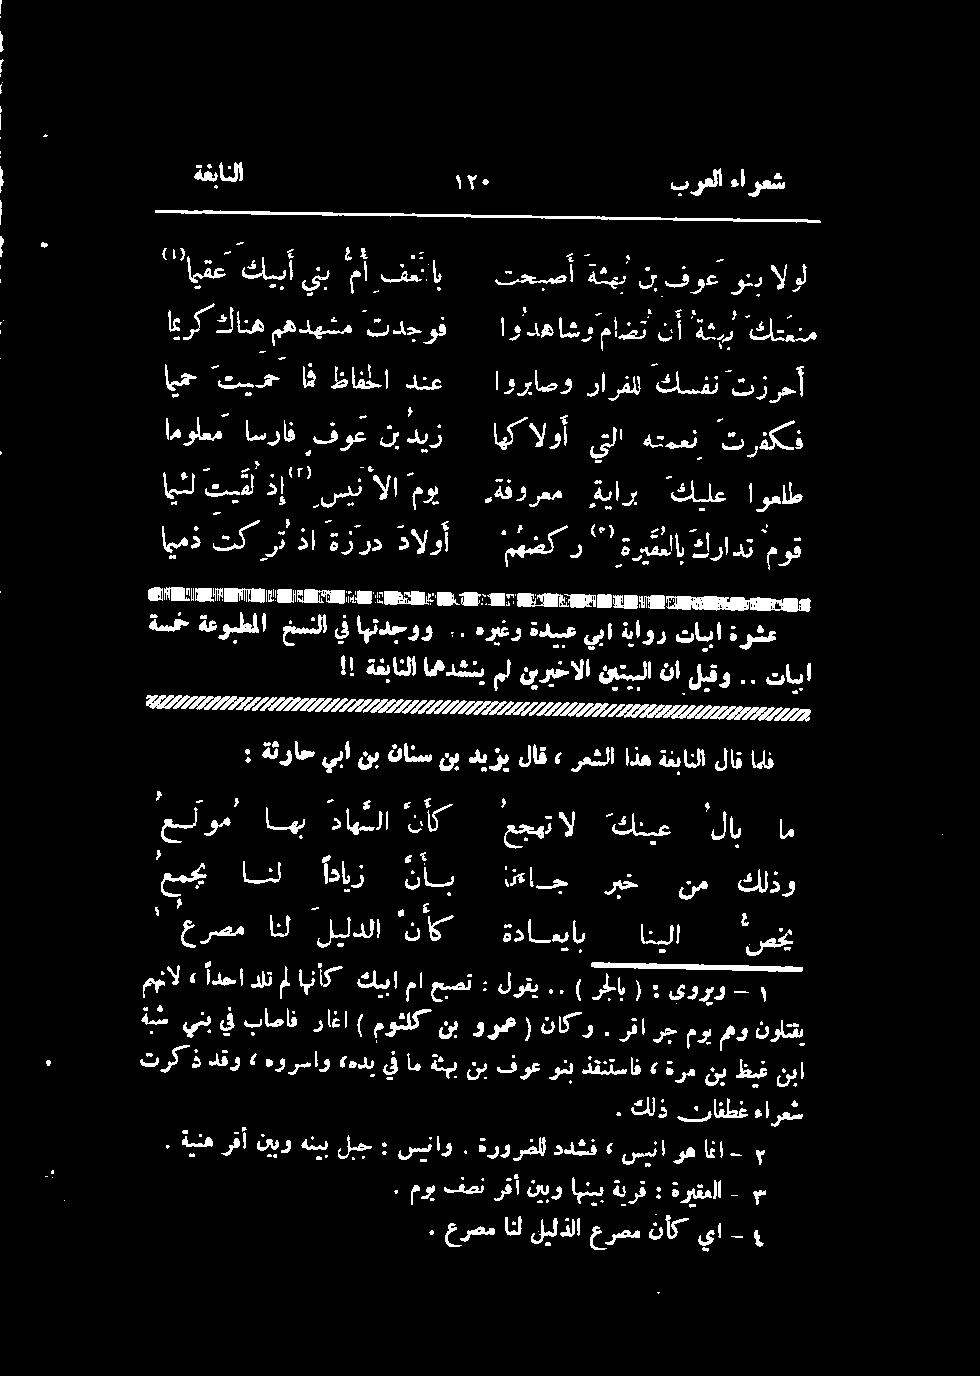 شعراء العرب ١٢٠ النابغة
لولا بنو عَوف بن بُهثَةَ أصبحت بالنَّعْفِ أُمُّ بني أبيكَ عَقيما (١)
منعَتكَ بُهثةُ أن تُضامَ وشاهدُوا فوجدتَ مشهدهم هناك كريما
أحرزتَ نفسكَ للفرار وصابروا عند الحفاظ فما حَمَيتَ حميما
فكفرتَ نعمته التي أولاكها زيدُ بن عَوفٍ فارساً مَعلوما
طلعوا عليكَ برايةٍ معروفةٍ يومَ الأنيسِ (٢) إذ لَقيتَ لئيما
قومٌ تداركَ بالعُقَيرةِ (٣) ركضُهُمْ أولادَ دَرزَةَ اذ تُرِكتَ ذميما
عشرة ابيات رواية ابي عبيدة وغيره .. ووجدتها في النسخ المطبوعة خمسة
ابيات .. وقيل ان البيتين الاخيرين لم ينشدهما النابغة !!
فلما قال النابغة هذا الشعر ، قال يزيد بن سنان بن ابي حارثة :
ما بالُ عينكَ لاتهجعُ كأنَّ السُّهادَ بها مُولَعُ
وذلك من خبر جاءنا بأنَّ زياداً لنا يجمعُ
يخصّ الينا بايعاده كأنَّ الدليلَ لنا مصرعُ ٤
١ – ويروى : ( بالجر ) .. يقول : تصبح ام ابيك كأنها لم تلد احداً ، لانهم
يقتلون وهم يوم جر اقر . وكان ( عمرو بن كلثوم ) اغار فاصاب في بني شبة
ابن غيظ بن مرة ، فاستنقذ بنو عوف بن بهثة ما في يده، واسروه ، وقد ذكرت
شعراء غطفان ذلك .
٢ – انما هو انيس ، فشدد للضرورة . وانيس : جبل بينه وبين أقر هنية .
٣ – العقيرة : قرية بينها وبين أقر نصف يوم .
٤ – اي كأن مصرع الذليل لنا مصرع .